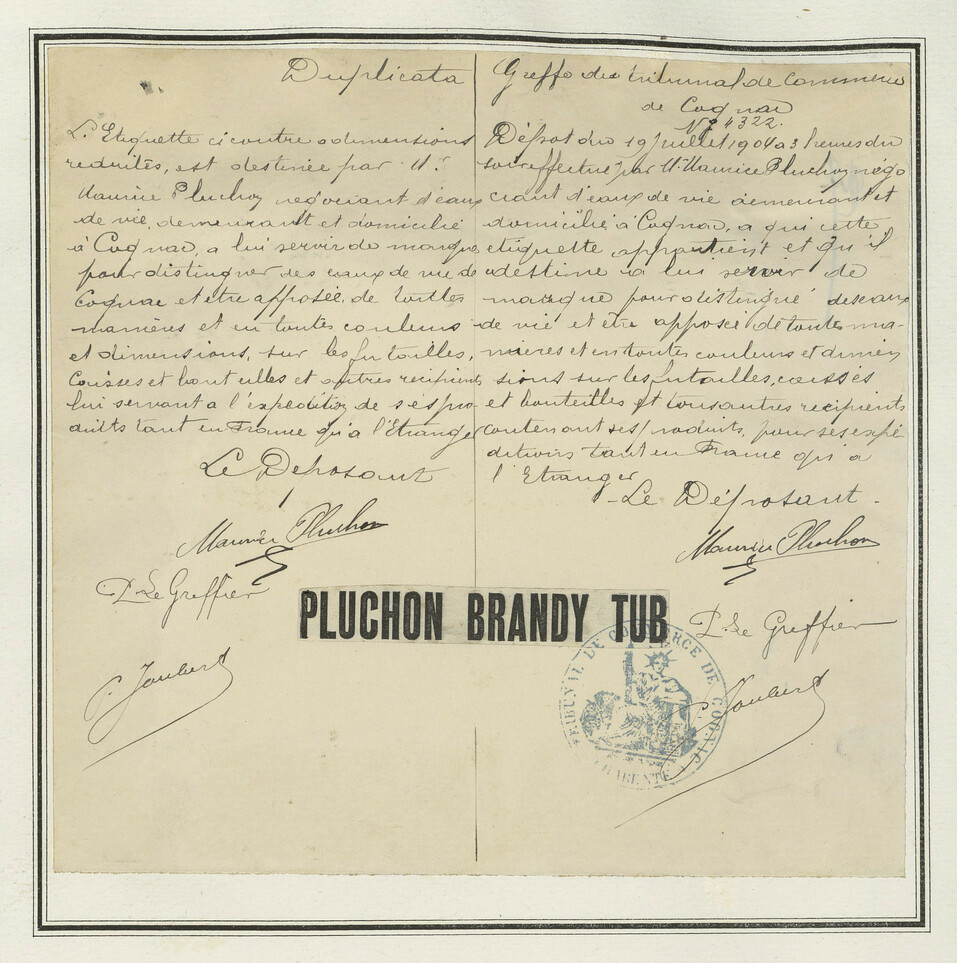 Duplicata
L'Etiquette ci contre a dimensions
reduites, est destinée par Mr
Maurice Pluchon negociant d'eaux
de vie, demeurant et domicilié
à Cognac, a lui servir de marque
pour distinguer ses eaux de vie de
Cognac et etre apposée, de toutes
manières et en toutes couleurs
et dimensions, sur les futailles,
Caisses et bouteilles et autres recipients
lui servant a l'expedition de ses pro
duits tant en France qu'a l'Etranger
Le Deposant
Maurice Pluchon
P. Le Greffier
Joubert
Greffe du tribunal de Commerce
de Cognac
No 4322.
Dépot du 19 Juillet 1904 a 3 heures du
soir effectué par M. Maurice Pluchon négo
ciant d'eaux de vie demeurant et
domicilié à Cognac, a qui cette
etiquette appartient et qu'il
destine a lui servir de
marque pour distingué des eaux
de vie et être apposée de toutes ma-
nieres et en toutes couleurs et dimen
sions sur les futailles, caisses
et bouteilles et tous autres recipients
contenant ses produits, pour ses expé
ditions tant en France qu'a
l'Etranger
Le Déposant.
Maurice Pluchon
P. Le Greffier
Joubert
PLUCHON BRANDY TUB
TRIBUNAL DE COMMERCE DE COGNAC
CHARENTE